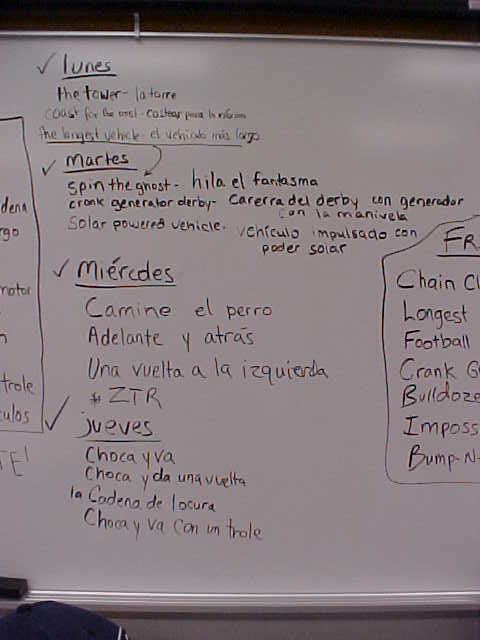 ✓ lunes
the tower - la torre
coast for the most - costear para lo máximo
the longest vehicle - el vehículo más largo
✓ martes
spin the ghost - hila el fantasma
crank generator derby - carerra del derby con generador
con la manivela
Solar powered vehicle - vehículo impulsado con
poder solar
✓ miércoles
Camine el perro
Adelante y atrás
Una vuelta a la izquierda
* ZTR
✓ jueves
Choca y va
Choca y da una vuelta
la Cadena de locura
Choca y va con un trole
dena
rgo
motor
n
trole
ulos
TE!
FR
Chain C
Longest
Football
Crank G
Bulldoze
Imposs
Bump-N-